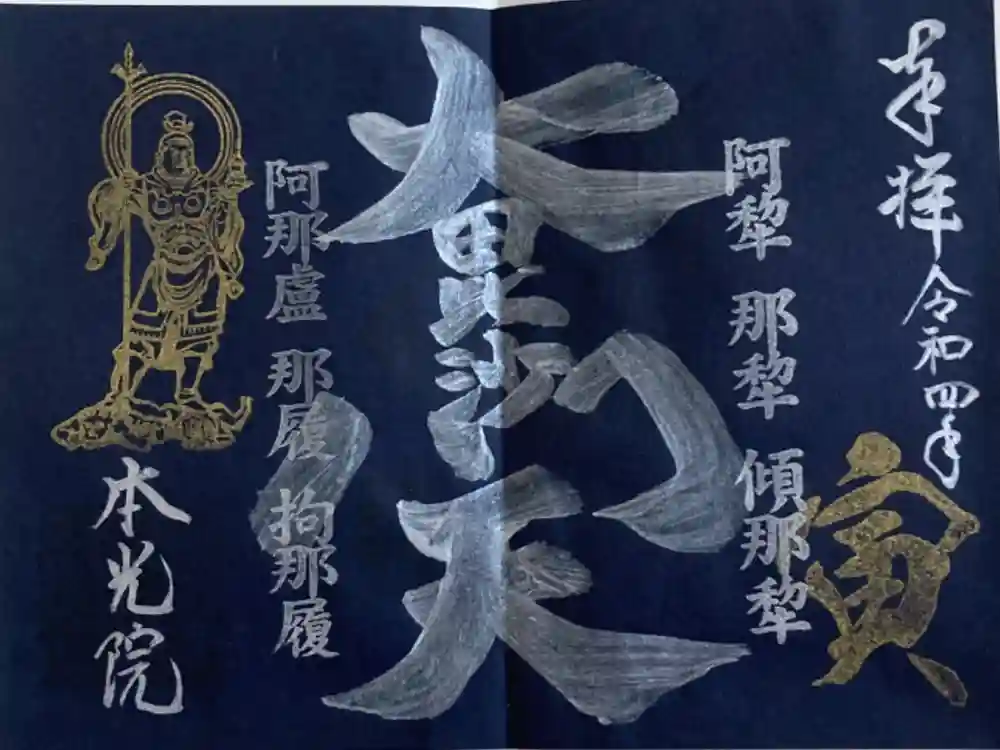 奉拝 令和四年
寅
阿犂 那犂 傾那犂
大毘沙門天
阿那盧 那履 拘那履
本光院